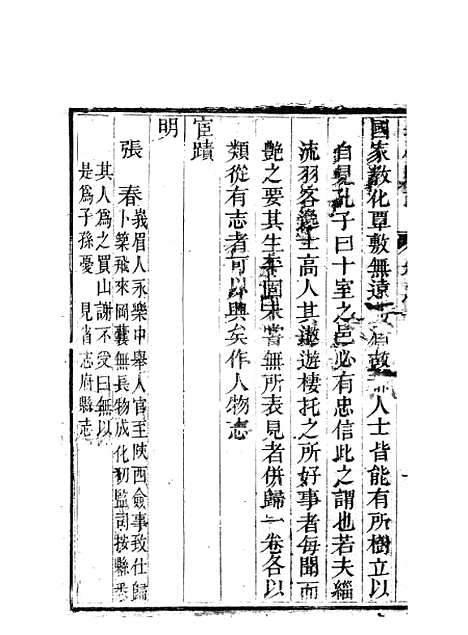 國家教化覃敷無遠人士皆能有所樹立以
自見孔子曰十室之邑必有忠信此之謂也若夫緇
流羽客逸士高人其遨遊棲托之所好事者每聞而
艷之要其生平固未嘗無所表見者併歸一卷各以
類從有志者可以興矣作人物志
宦蹟
明
張春
峩眉人永樂中舉人官至陝西僉事致仕歸
卜築飛來岡囊無長物成化初監司按縣悉
其人爲之買山謝不受曰無以
是爲子孫憂 見省志府縣志